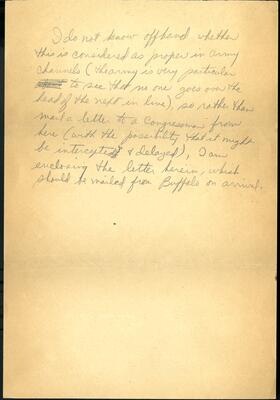 I do not know offhand whether
this is considered as proper in army
channels (the army is very particular
to see that no one goes over the
head of the next in line), so rather than
mail a letter to a Congressman from
here (with the possibility that it might
be intercepted & delayed), I am
enclosing the letter herein, which
should be mailed from Buffalo on arrival.